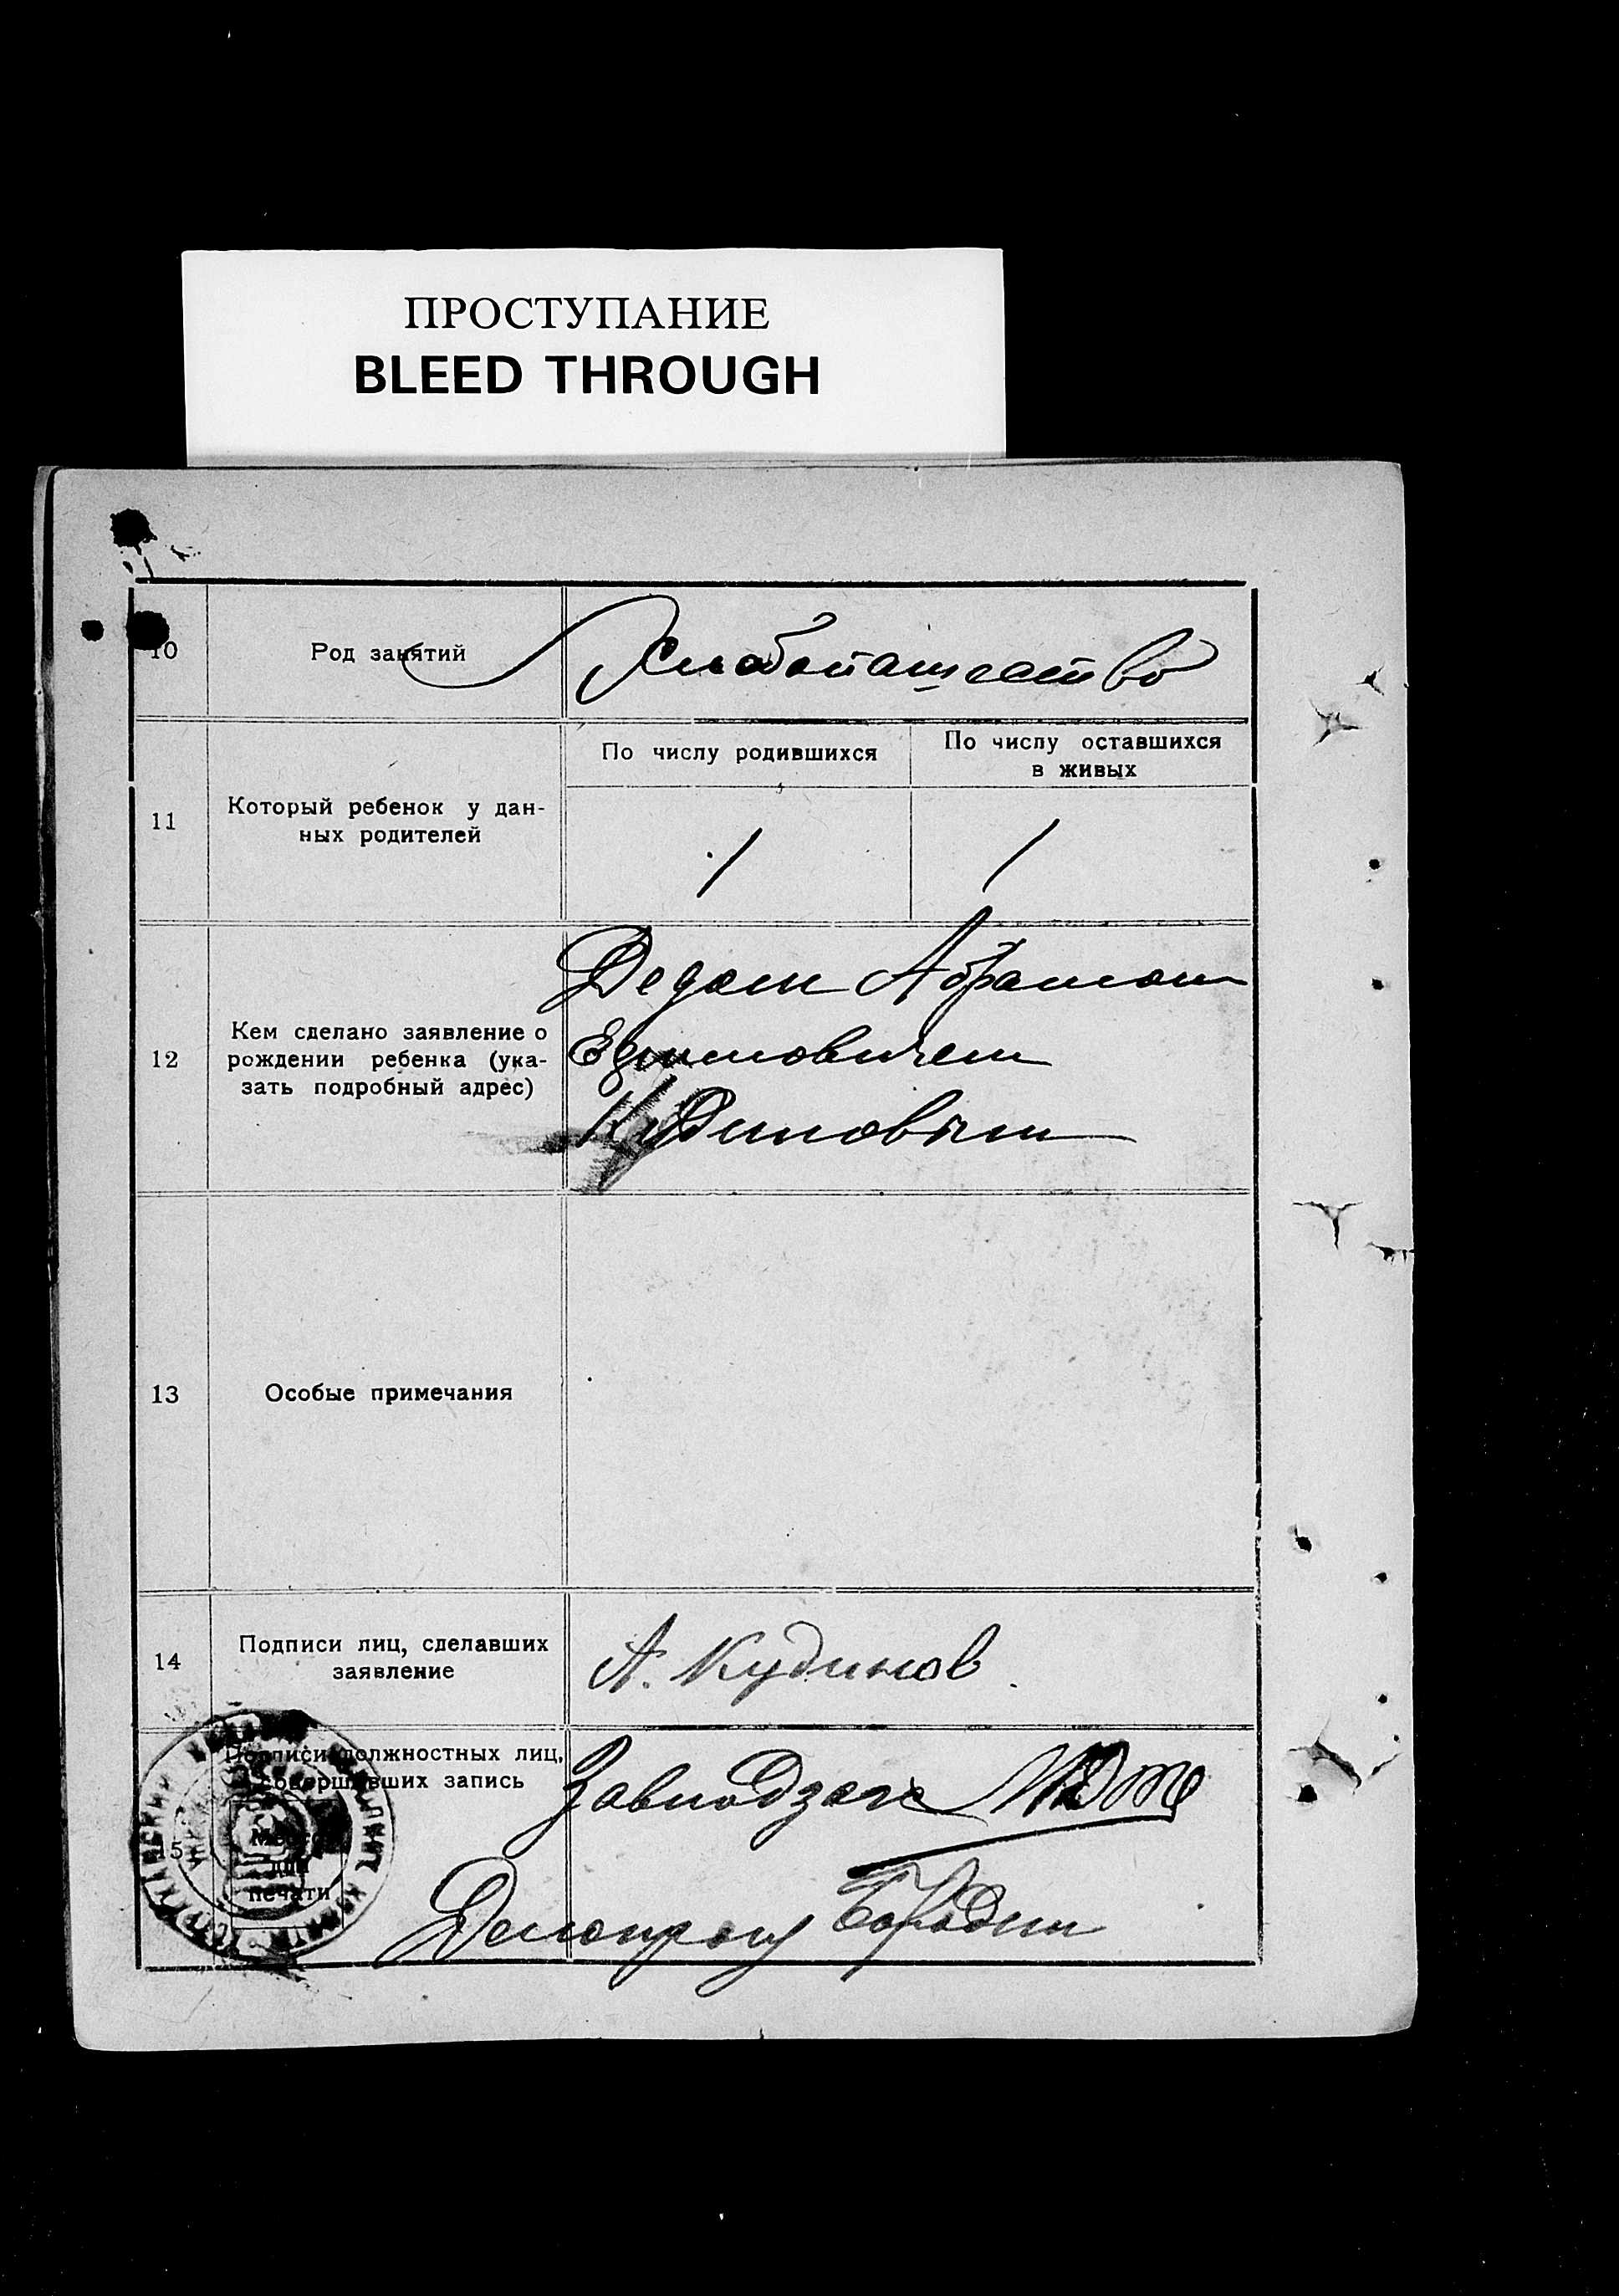 ПРОСТУПАНИЕ
BLEED THROUGH
10
Род занятий
Хлебопашество
11
Который ребенок у дан-
ных родителей
По числу родившихся
1
По числу оставшихся
в живых
1
12
Кем сделано заявление о
рождении ребенка (ука-
зать подробный адрес)
Дедом Абрамом
Ефимовичем
Кудиновым
13
Особые примечания
14
Подписи лиц, сделавших
заявление
А. Кудинов.
15
Подписи должностных лиц,
совершивших запись
Место
для
печати
Завподзагс
Делопроиз Бородин